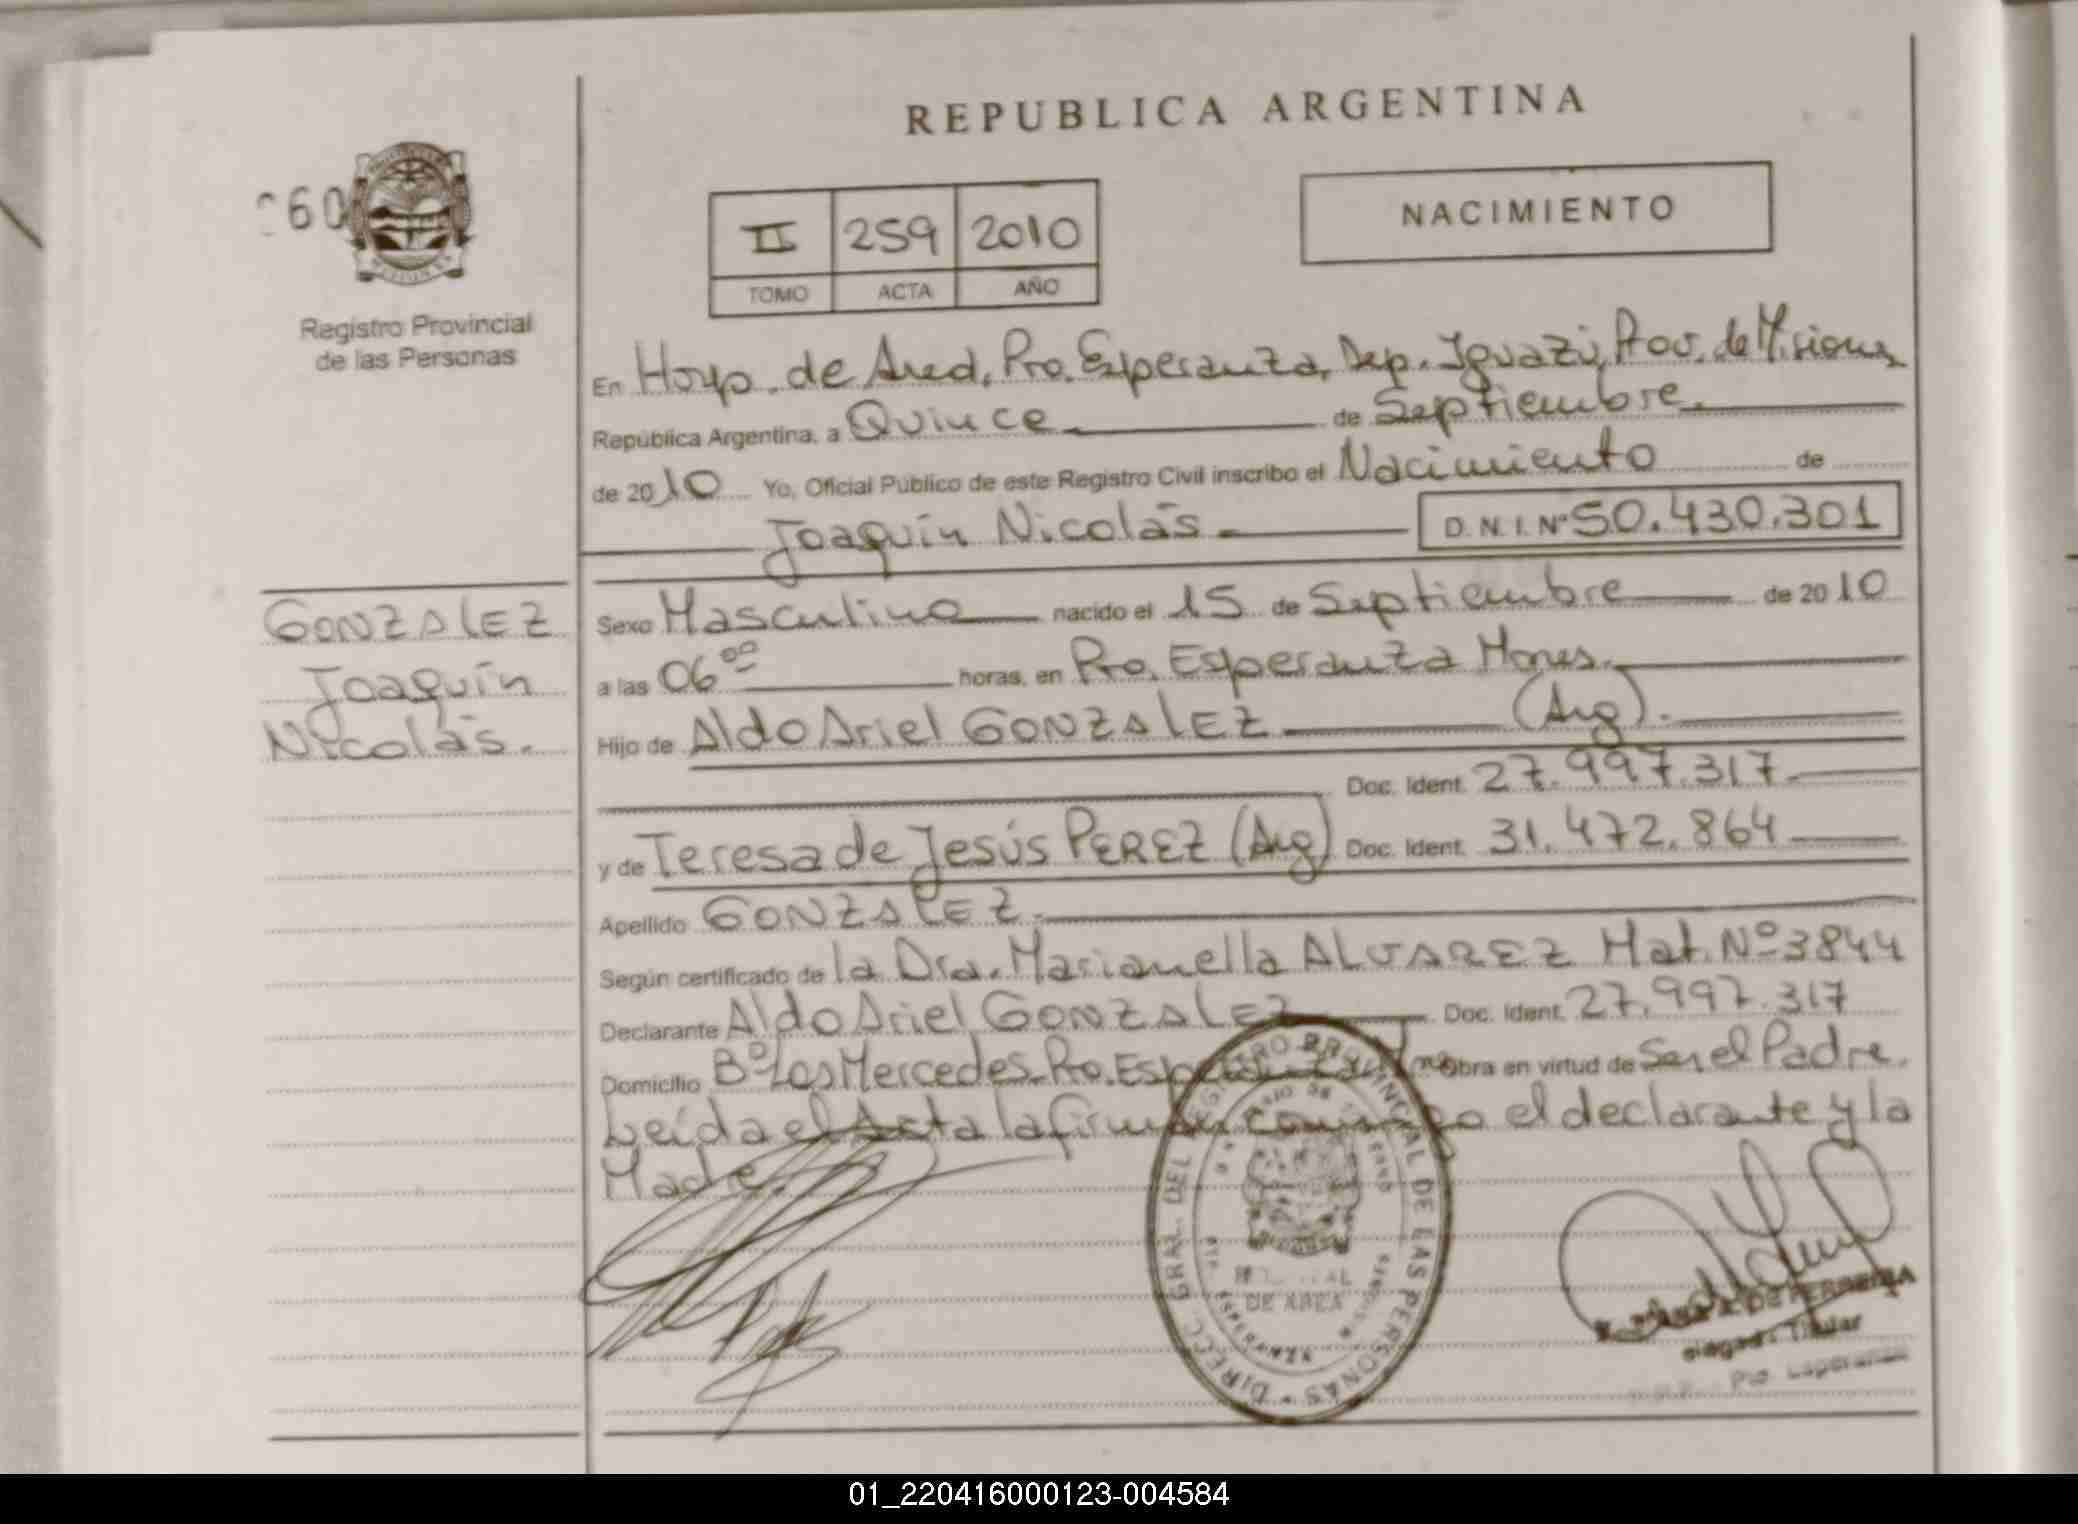 REPUBLICA ARGENTINA
60
NACIMIENTO
II 259 2010
TOMO ACTA AÑO
Registro Provincial
de las Personas
En Hosp. de Area, Pto. Esperanza, Dep. Iguazú, Prov. de Misiones
República Argentina, a Quince de Septiembre.
de 2010 Yo, Oficial Público de este Registro Civil inscribo el Nacimiento de
Joaquín Nicolás. D.N.I. Nº 50.430.301
GONZALEZ
Joaquín
Nicolás.
Sexo Masculino nacido el 15 de Septiembre de 2010
a las 06 00 horas, en Pto. Esperanza Mnes.
Hijo de Aldo Ariel GONZALEZ (Arg).
Doc. Ident. 27.997.317.
y de Teresa de Jesús PEREZ (Arg) Doc. Ident. 31.472.864
Apellido GONZALEZ.
Según certificado de la Dra. Marianella ALVAREZ Mat. Nº 3844
Declarante Aldo Ariel GONZALEZ Doc. Ident. 27.997.317
Domicilio Bº Las Mercedes-Pto. Esperanza Obra en virtud de Ser el Padre.
Leída el Acta la firman conmigo el declarante y la
Madre.
DIRECC. GRAL. DEL REGISTRO PROVINCIAL DE LAS PERSONAS
HOSPITAL
DE AREA
PTO. ESPERANZA - MISIONES
DE FERREIRA
Titular
Pto. Esperanza
01_220416000123-004584